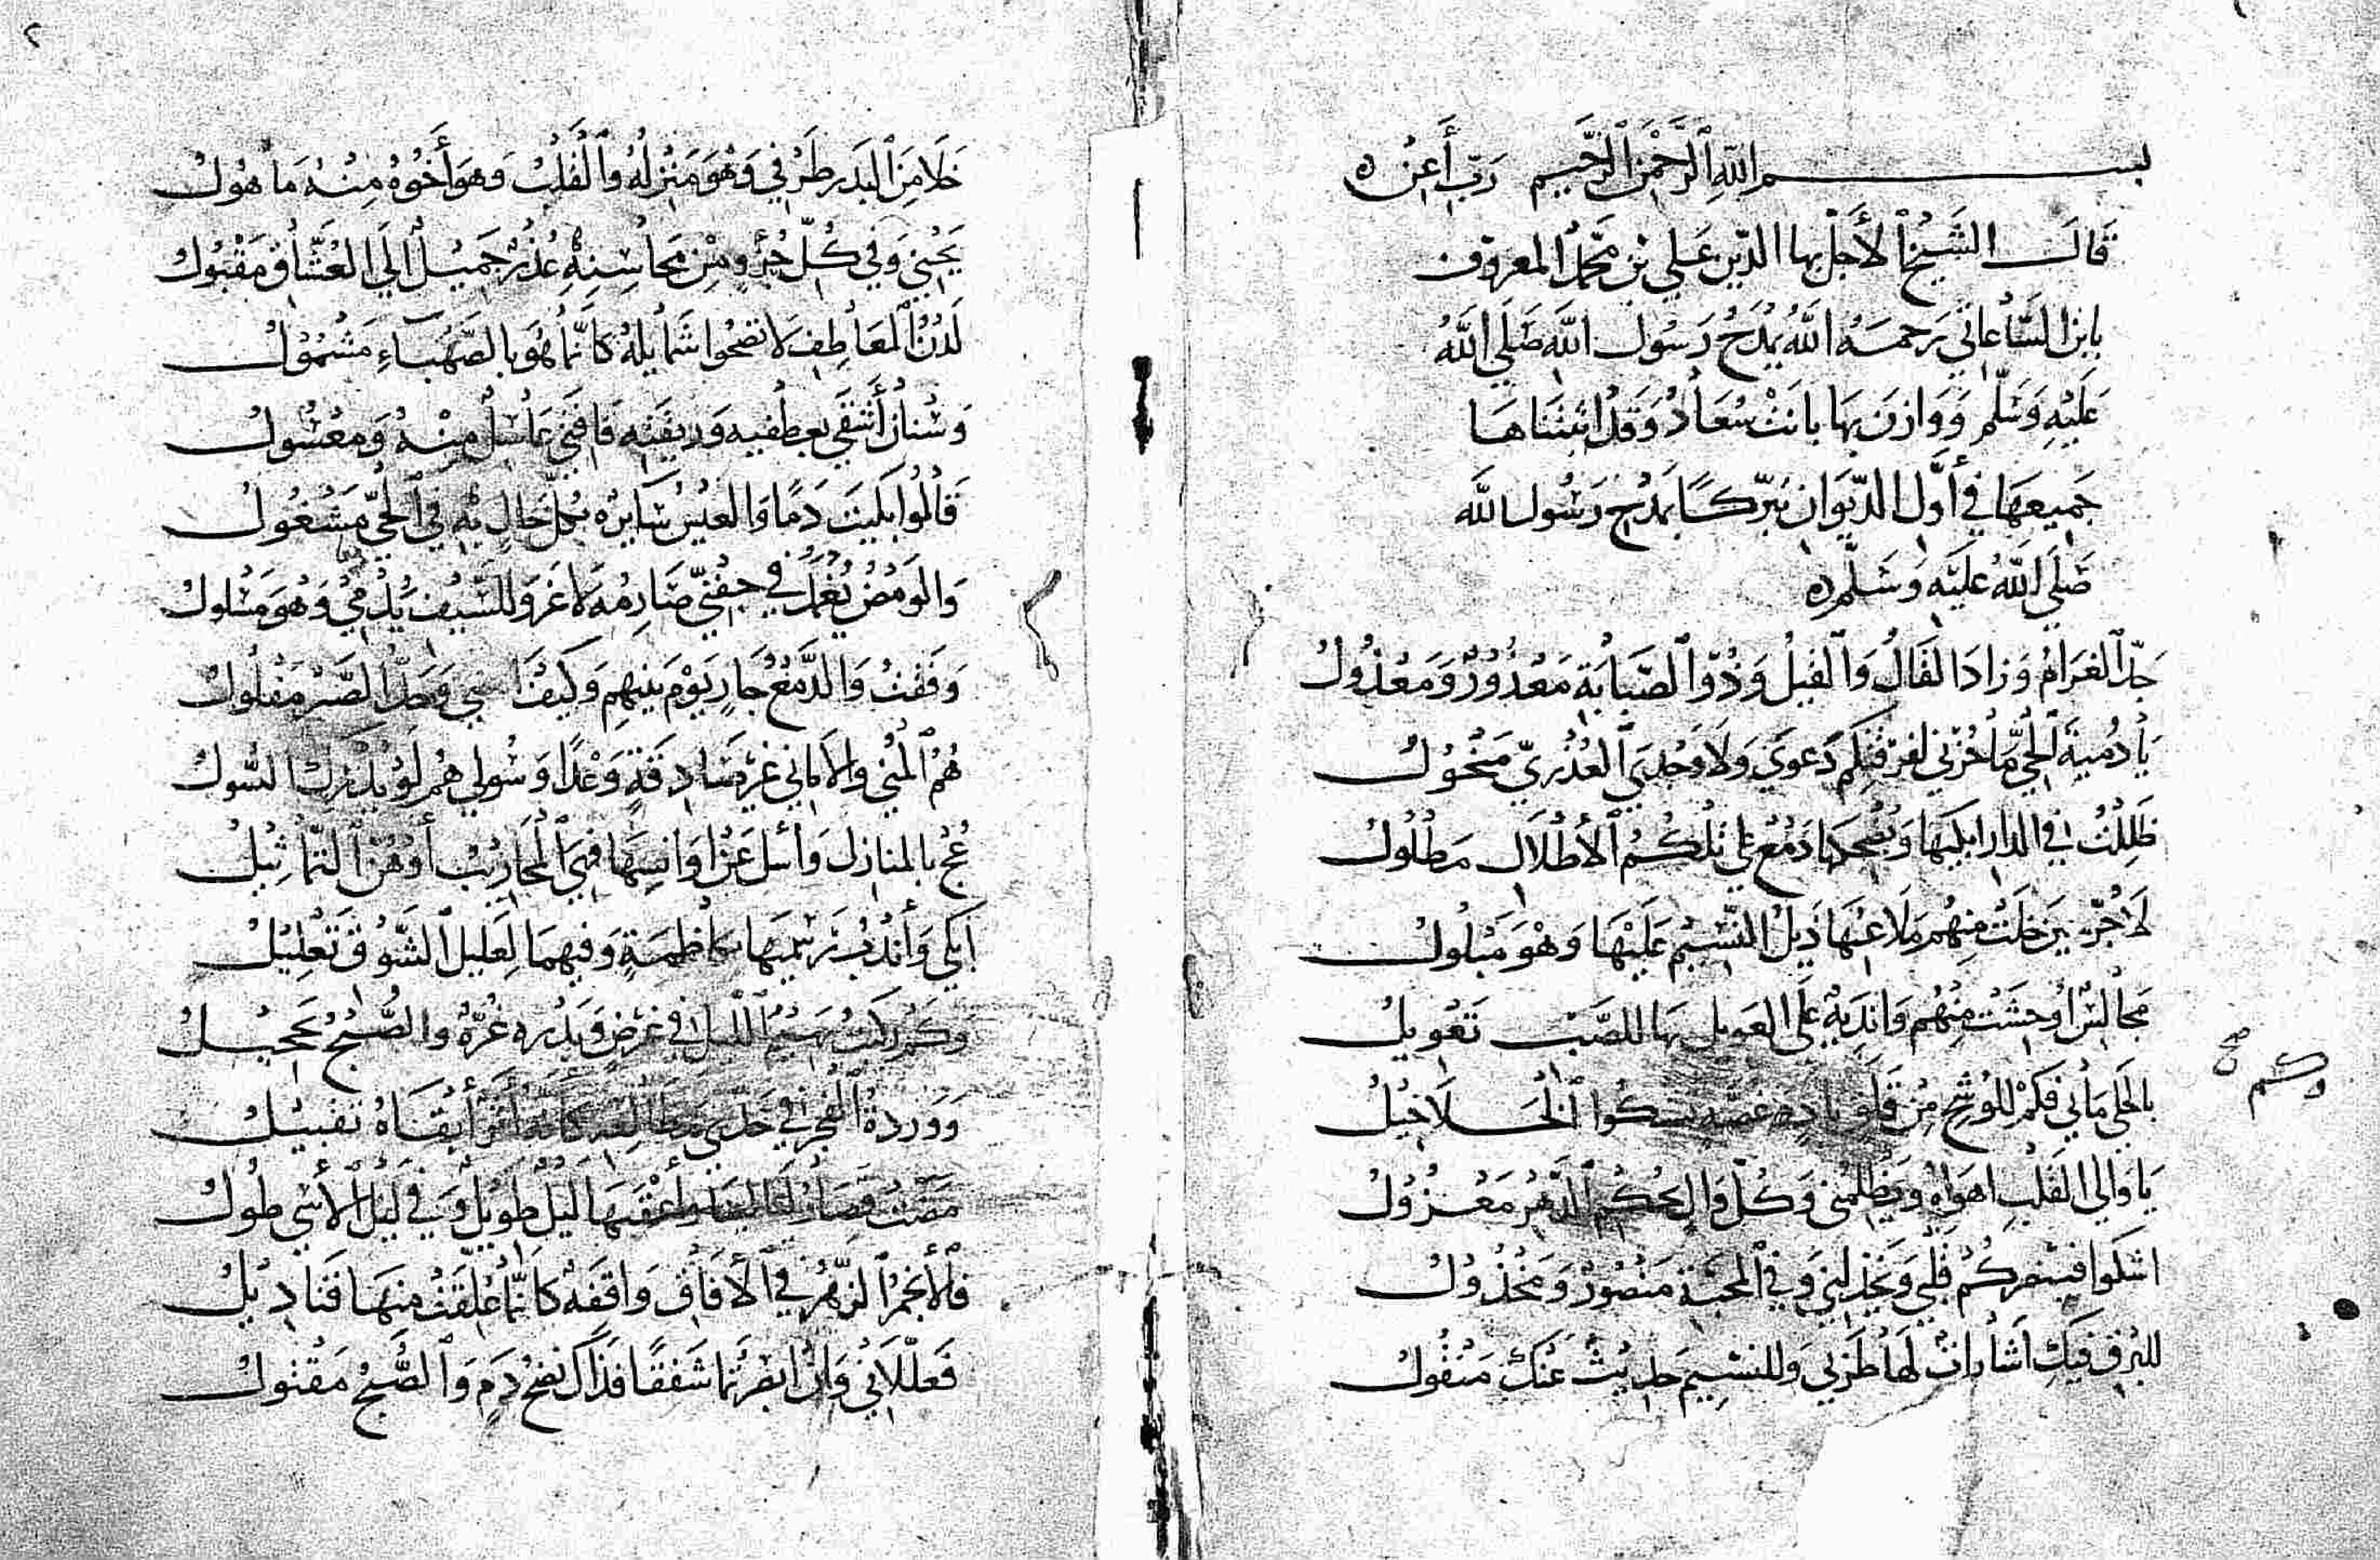 بسم الله الرحمن الرحيم رب أعن
قال الشيخ الأجل بها الدين علي بن محمد المعروف
بابن الساعاتي رحمه الله يمدح رسول الله صلى الله
عليه وسلم ووازن بها بانت سعاد وقد اثبتناها
جميعها في أول الديوان تبركا بمدح رسول الله
صلى الله عليه وسلم
جد الغرام وزاد القال والقيل وذو الصبابة معذور ومعذول
يا دمية الحي ما حزني لفرقتكم دعوى ولا وجدي العذري منحول
ظللت في الدار ابكيها ويضحكها دمع على تلكم الأطلال مطلول
خلت منهم ملاعبها ذيل النسيم عليها وهو مبلول
مجالس اوحشت منهم واندية على العويل بها للصب تعويل
بالحلي ماني فكم للوشح من قلق الخلاخيل
يا والي القلب اهواه ويظلمني وكل وال لحكم الدهر معزول
اشكوا فينصركم قلبي ويخذلني وفي المحبة منصور ومخذول
للبرق فيك اشارات لها طربي وللنسيم حديث عنك منقول
وكم
صح
٢
خلا من البدر طرفي وهو منزله والقلب وهو أخوه منه مأهول
يجني وفي كل جزء من محاسنه عذر جميل الى العشاق مقبول
لدن المعاطف لا تصحوا شمايله كانما هو بالصهباء مشمول
وسنان أشقى بعطفيه وريقته فافتن عاسل منه ومعسول
قالوا بكيت دما والعيس سايره بكل خال به في الحي مشغول
والومض يغمد في جفني صارمه لا غرو للسيف يدمي وهو مسلول
وقفت والدمع جار يوم بينهم وكيف وحد الصبر مفلول
هم المنى والاماني غير صادقة وعدا وسولي هم لو يدرك السول
عج بالمنازل واسل عن اوانسها فهي المحاريب أو هن التماثيل
ابكي وأندب رئميها بكاظمة وفيهما لعليل الشوق تعليل
وكم ركبت بهيم الليل في غرض وبدره غرة والصبح تحجيل
ووردة الفجر في خدي مطالعه كأنه أثر أبقاه تقبيل
مضت قصار ليالينا وأعقبها ليل طويل وفي ليل الأسى طول
فلأنجم الزهر في الافاق واقفه كانما علقت منها قناديل
فعللاني وان ابصرتما شفقا فذاك نضح دم والصبح مقتول